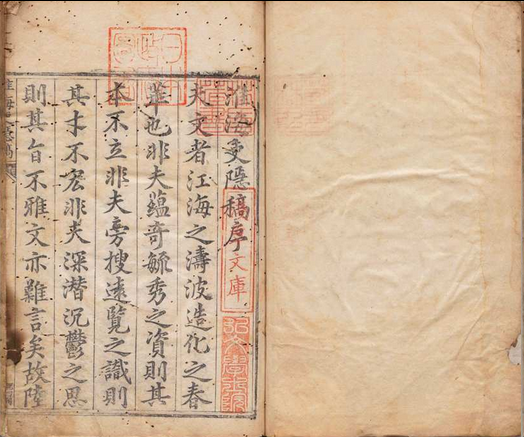 淮海吏隱稿序
文庫
夫文者江海之濤波造化之春
華也非夫蘊奇毓秀之資則其
本不立非夫旁搜遠覽之識則
其才不宏非夫深潜沉鬱之思
則其旨不雅文亦難言矣故陸